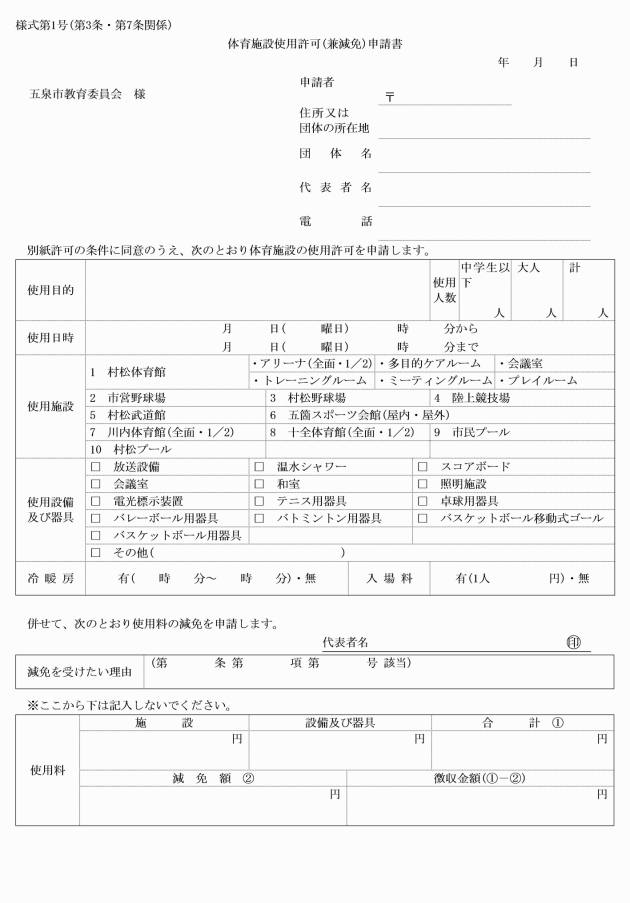 様式第1号(第3条・第7条関係)
体育施設使用許可(兼減免)申請書
年　月　日
五泉市教育委員会　様
申請者
〒
住所又は
団体の所在地
団体名
代表者名
電話
別紙許可の条件に同意のうえ、次のとおり体育施設の使用許可を申請します。
使用目的
使用人数
中学生以下　人
大人　人
計　人
使用日時
月　日(　曜日)　時　分から
月　日(　曜日)　時　分まで
使用施設
1　村松体育館
・アリーナ(全面・1／2)　・多目的ケアルーム　・会議室
・トレーニングルーム　・ミーティングルーム　・プレイルーム
2　市営野球場　3　村松野球場　4　陸上競技場
5　村松武道館　6　五箇スポーツ会館(屋内・屋外)
7　川内体育館(全面・1／2)　8　十全体育館(全面・1／2)　9　市民プール
10　村松プール
使用設備
及び器具
□　放送設備　□　温水シャワー　□　スコアボード
□　会議室　□　和室　□　照明施設
□　電光標示装置　□　テニス用器具　□　卓球用器具
□　バレーボール用器具　□　バトミントン用器具　□　バスケットボール移動式ゴール
□　バスケットボール用器具
□　その他(　)
冷暖房　有(　時　分～　時　分)・無　入場料　有(1人　円)・無
併せて、次のとおり使用料の減免を申請します。
代表者名　㊞
減免を受けたい理由　(第　条 第　項 第　号 該当)
※ここから下は記入しないでください。
使用料
施設　設備及び器具　合計　①
円　円　円
減免額　②　徴収金額(①－②)
円　円